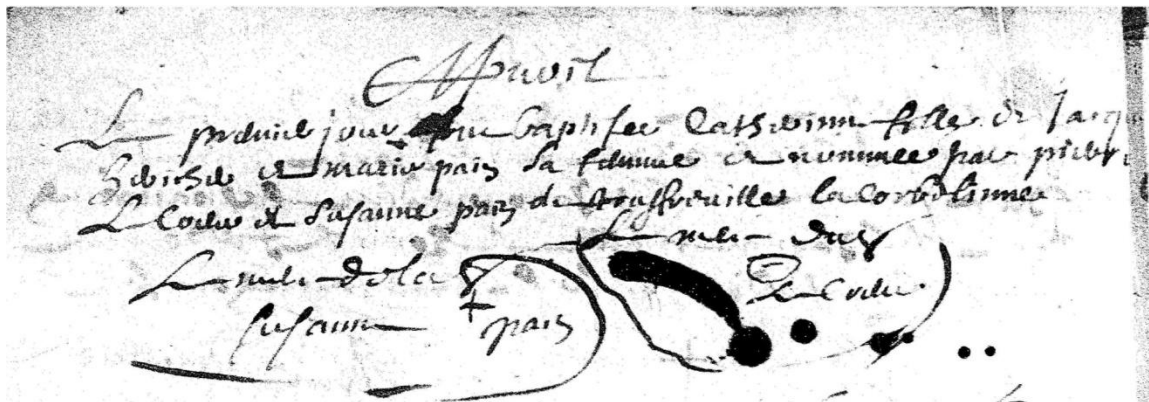 Apvril
Le premier jour fut baptisee Catherinne fille de Jacq
et marie pain sa femme et nommee par pierre
Le Cordier et Susanne pain de trouffreville la Corbelinne
Le merc dud
Le merc de lad Le Cordier
susanne pain